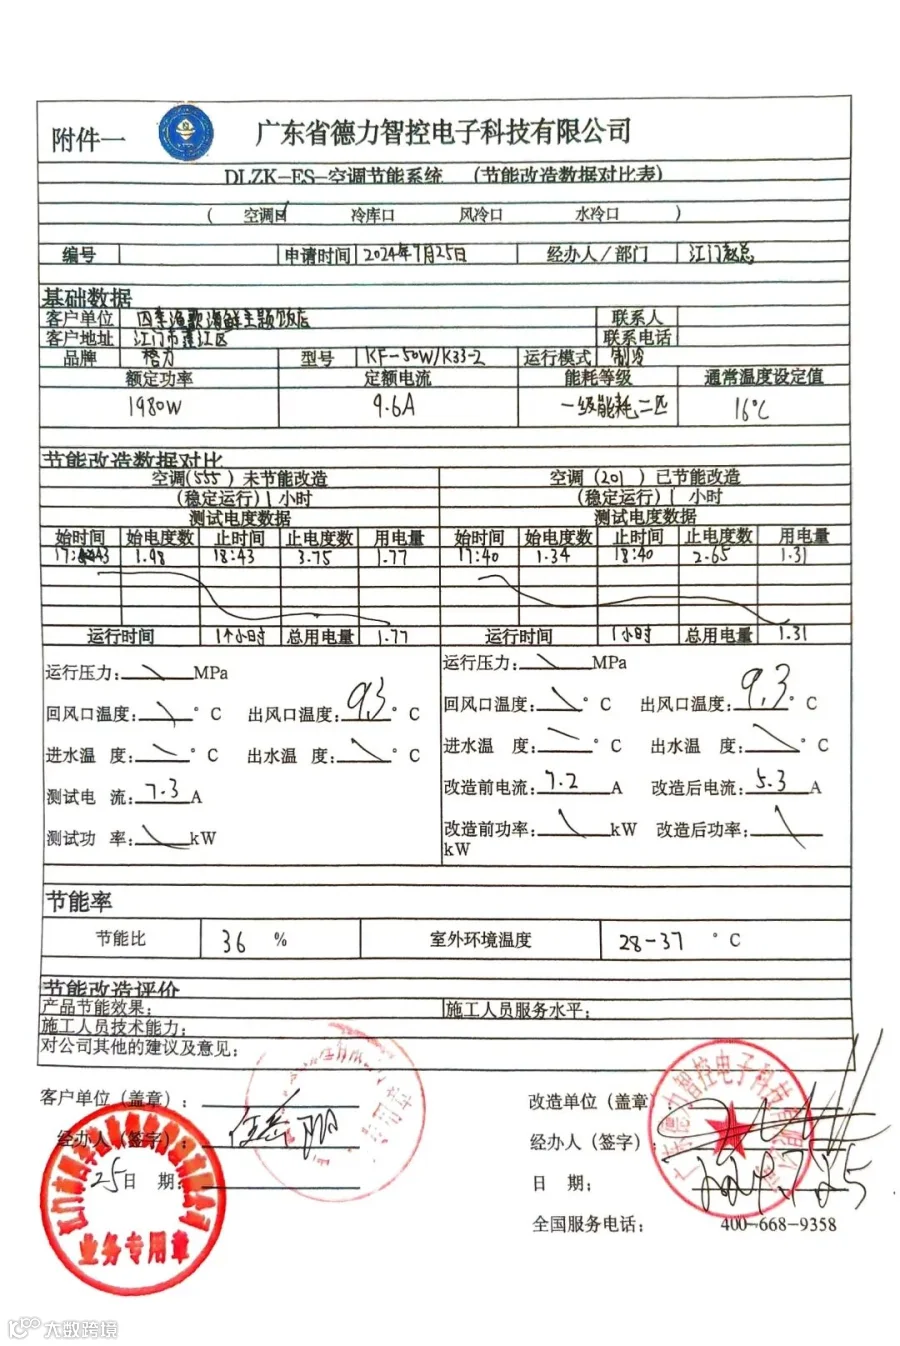 附件一 广东省德力智控电子科技有限公司
DLZK-ES-空调节能系统 (节能改造数据对比表)
( 空调口 冷库口 风冷口 水冷口 )
编号 申请时间 2024年7月25日 经办人/部门 江门赵总
基础数据
客户单位 四季渔歌海鲜主题饭店 联系人
客户地址 江门市蓬江区 联系电话
品牌 格力 型号 KF-50W/K33-2 运行模式 制冷
额定功率 定额电流 能耗等级 通常温度设定值
1980W 9.6A 一级能耗二匹 16℃
节能改造数据对比
空调(555)未节能改造 空调(201)已节能改造
(稳定运行)1小时 (稳定运行)1 小时
测试电度数据 测试电度数据
始时间 始电度数 止时间 止电度数 用电量 始时间 始电度数 止时间 止电度数 用电量
17:43 1.98 18:43 3.75 1.77 17:40 1.34 18:40 2.65 1.31
运行时间 1个小时 总用电量 1.77 运行时间 1小时 总用电量 1.31
运行压力: MPa 运行压力: MPa
回风口温度: °C 出风口温度: 9.3 °C 回风口温度: °C 出风口温度: 9.3 °C
进水温 度: °C 出水温 度: °C 进水温 度: °C 出水温 度: °C
测试电 流: 7.3 A 改造前电流: 7.2 A 改造后电流: 5.3 A
测试功 率: kW 改造前功率: kW 改造后功率:
kW
节能率
节能比 36 % 室外环境温度 28-37 °C
节能改造评价
产品节能效果: 施工人员服务水平:
施工人员技术能力:
对公司其他的建议及意见:
客户单位(盖章): 改造单位(盖章):
经办人(签字): 经办人(签字):
25日 期: 日 期:
业务专用章
全国服务电话: 400-668-9358
大数跨境